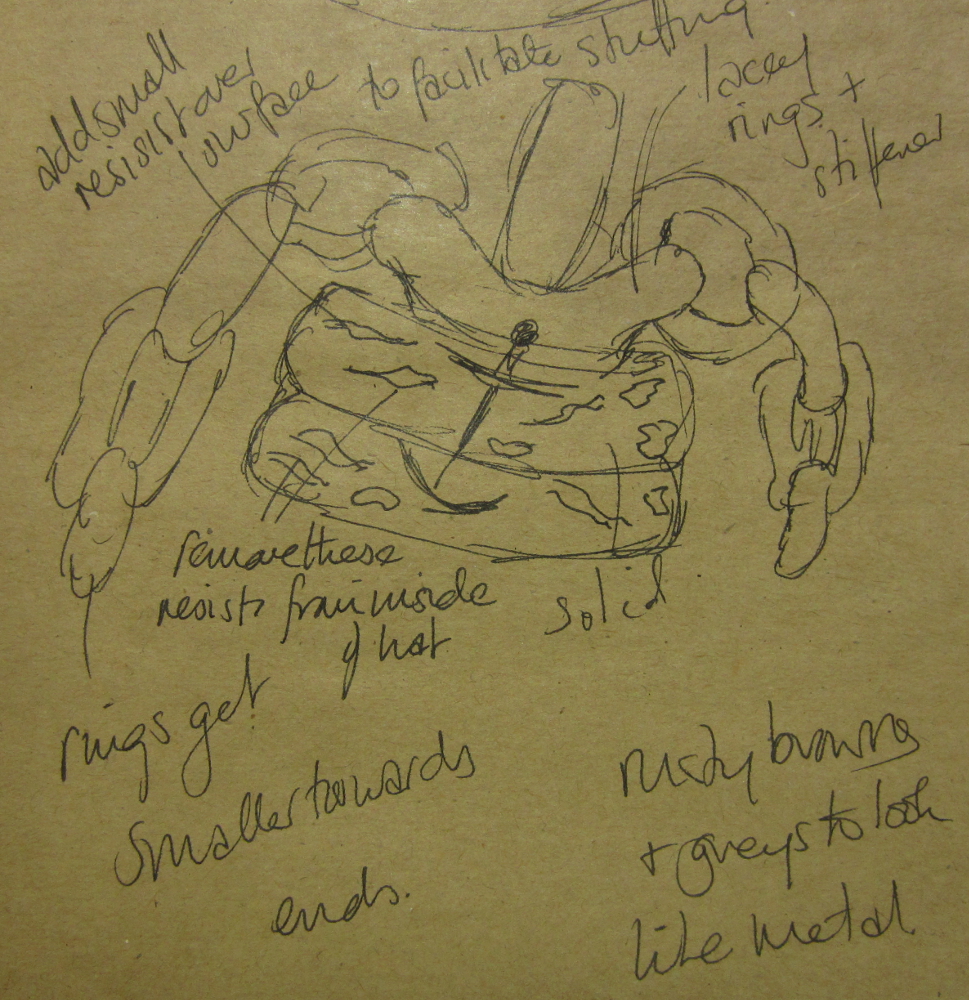 add small
resist over
surface to facilitate stuffing
lacey
rings +
stiffener
remove these
resists from inside
of hat
solid
rings get
smaller towards
ends.
rusty browns
+ greys to look
like metal